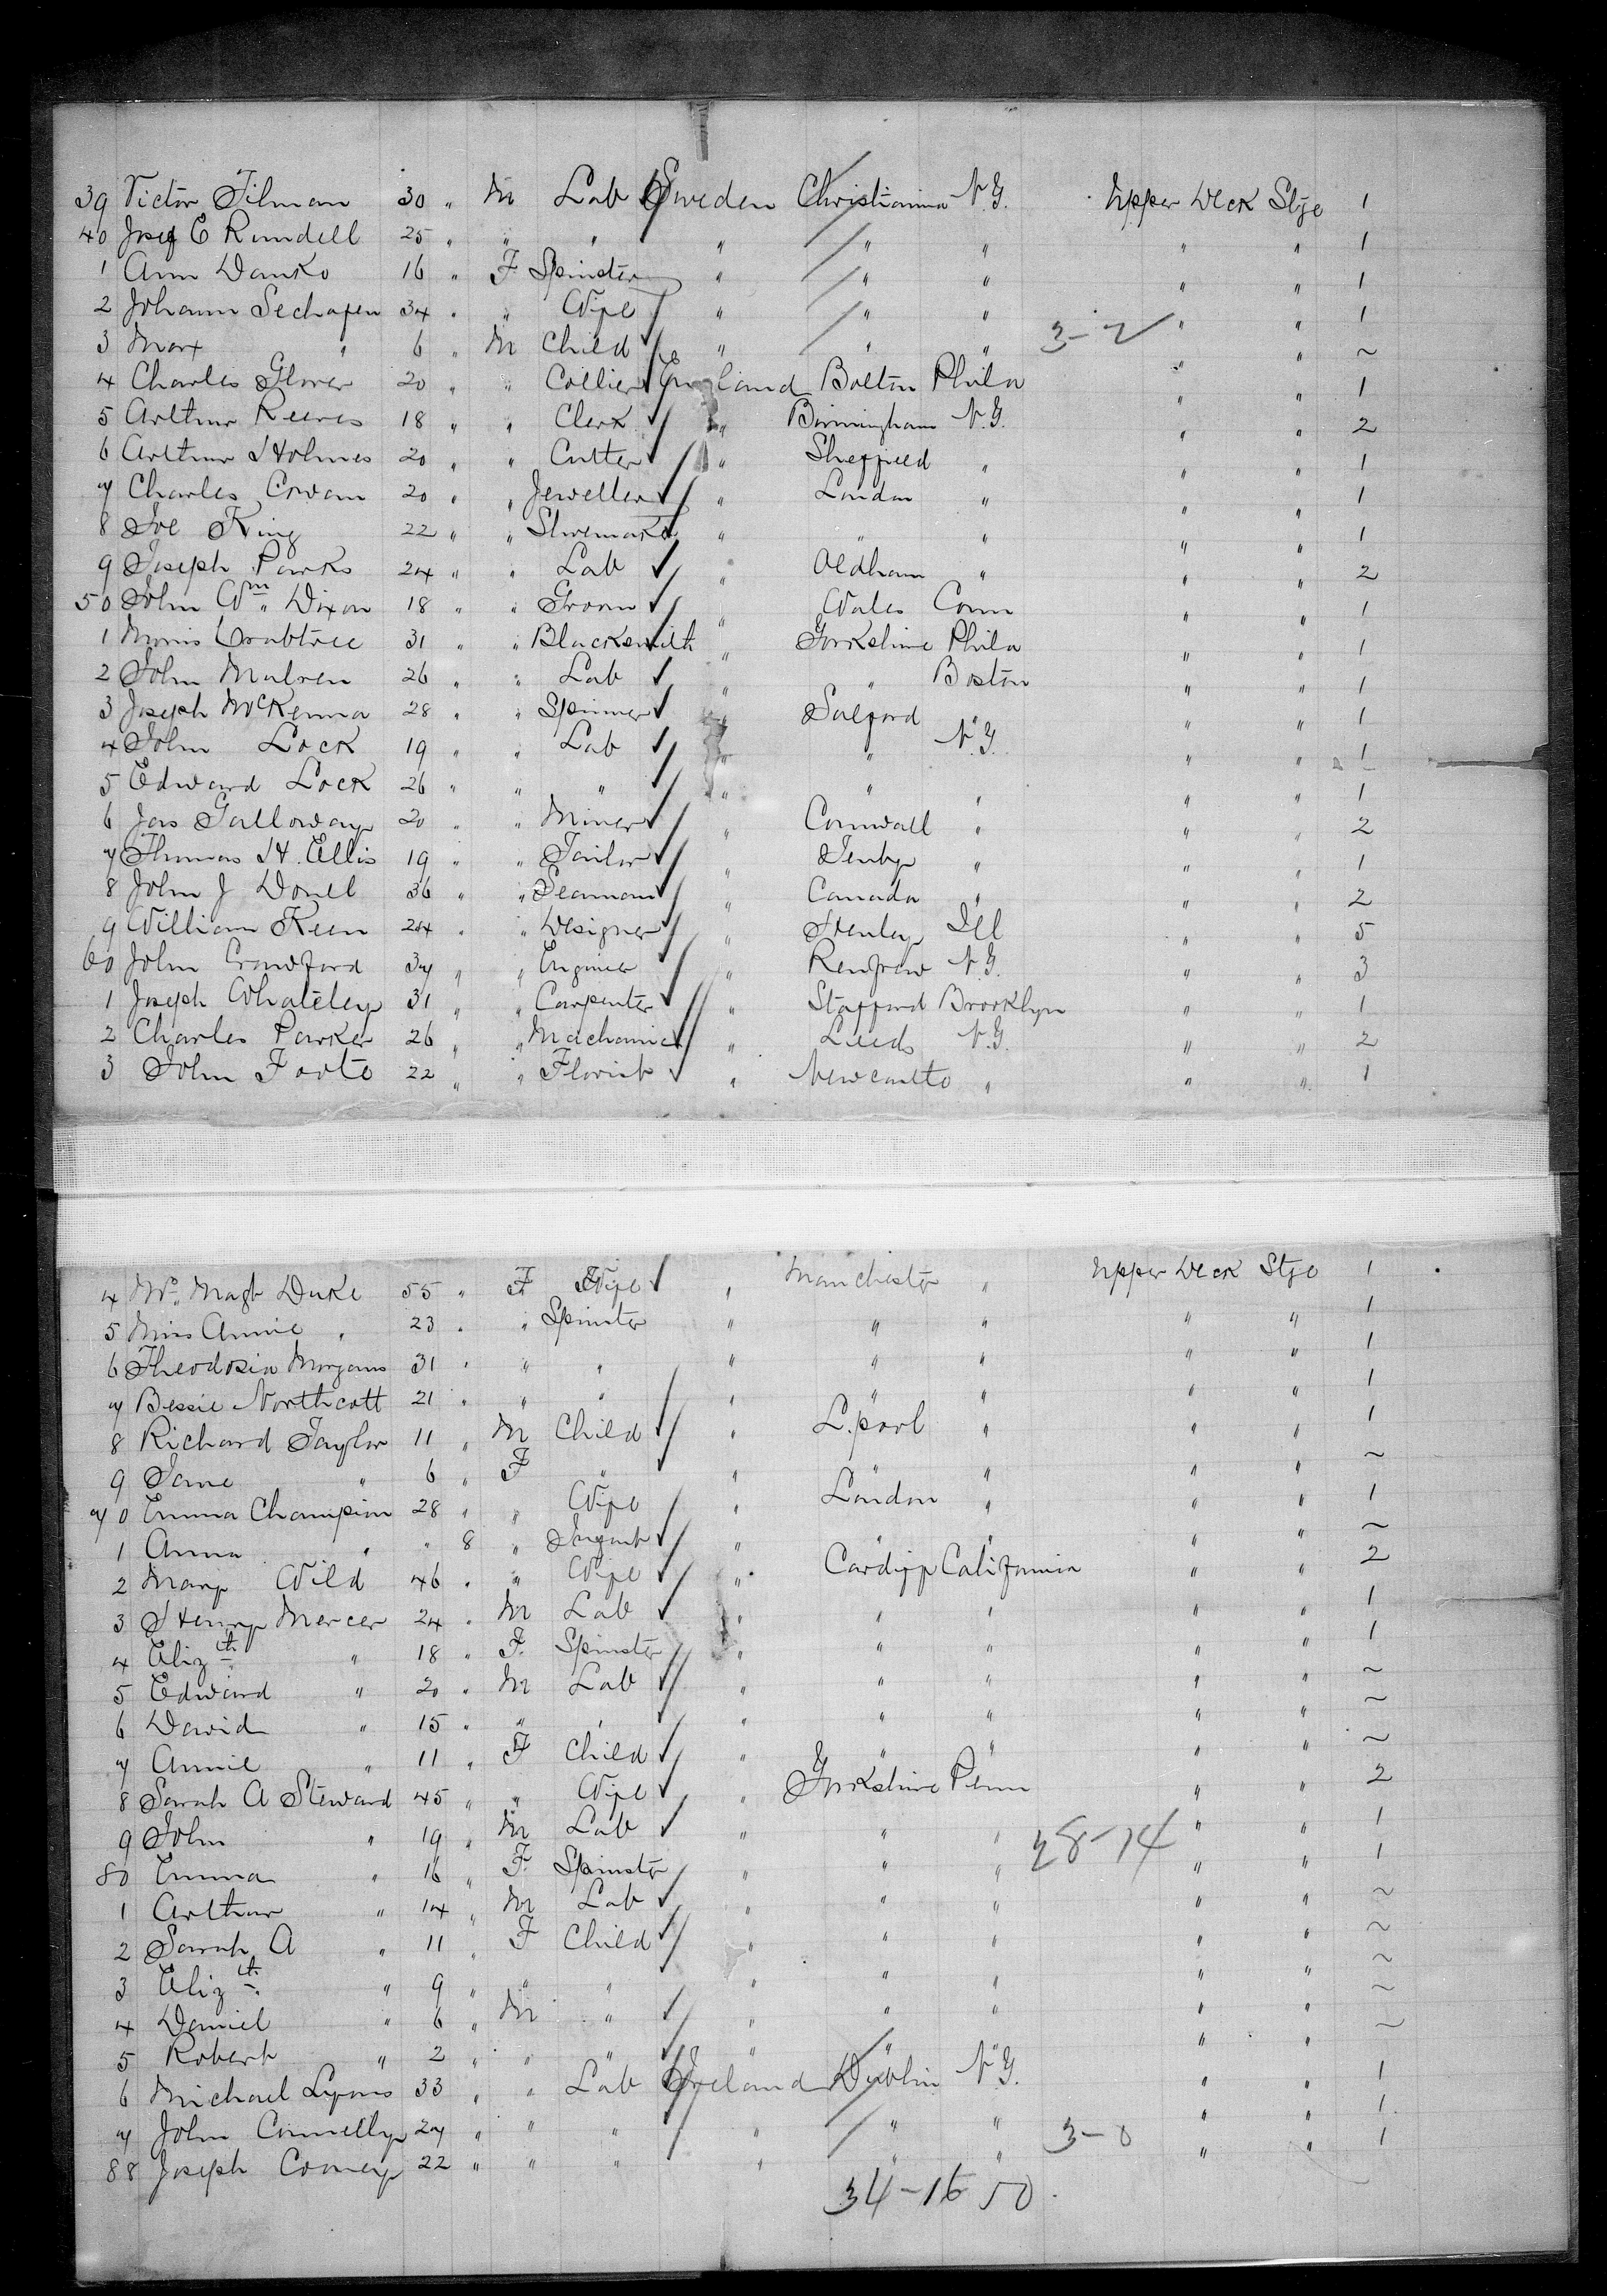 39 Victor Tilman 30 " M Lab Sweden Christiania N.Y. Upper Deck Stge 1
40 Josef C Rundell 25 " " " " " " " " 1
1 Ann Danko 16 " F Spinster " " " " " 1
2 Johann Sechafen 34 " " Wife " " " " " 1
3 Max " 6 " M Child " " " 3-2 " " ~
4 Charles Glover 20 " " Collier England Bolton Phila " " 1
5 Arthur Reeves 18 " " Clerk " Birmingham N.Y. " " 2
6 Arthur Holmes 20 " " Cutter " Sheffield " " " 1
7 Charles Cowan 20 " " Jeweller " London " " " 1
8 Joe King 22 " " Shoemaker " " " " " 1
9 Joseph Parks 24 " " Lab " Oldham " " " 2
50 John Wm. Dixon 18 " " Groom " Wales Conn " " 1
1 Morris Crabtree 31 " " Blacksmith " Yorkshire Phila " " 1
2 John Mulren 26 " " Lab " " Boston " " 1
3 Joseph McKenna 28 " " Spinner " Salford " " " 1
4 John Lock 19 " " Lab " " N.Y. " " 1
5 Edward Lock 26 " " " " " " " " 1
6 Jas Galloway 20 " " Miner " Cornwall " " " 2
7 Thomas H. Ellis 19 " " Tailor " Tenby " " " 1
8 John J Donell 36 " " Seaman " Canada " " " 2
9 William Keen 24 " " Designer " Henley Ill " " 5
60 John Crawford 37 " " Engineer " Renfrew N.Y. " " 3
1 Joseph Whateley 31 " " Carpenter " Stafford Brooklyn " " 1
2 Charles Parker 26 " " Machanic " Leeds N.Y. " " 2
3 John Foote 22 " " Florist " Newcastle " " " 1
4 Mrs. Magt Duke 55 " F Wife " Manchester " Upper Deck Stge 1
5 Miss Annie " 23 " " Spinster " " " " " 1
6 Theodosia Morgans 31 " " " " " " " " 1
7 Bessie Northcott 21 " " " " " " " " 1
8 Richard Taylor 11 " M Child " L.pool " " " 1
9 Jane " 6 " F " " " " " " ~
70 Emma Champion 28 " " Wife " London " " " 1
1 Anna " " 8 " Infant " " " " " ~
2 Mary Wild 46 " " Wife " Cardiff California " " 2
3 Henry Mercer 24 " M Lab " " " " " 1
4 Elizth " 18 " F. Spinster " " " " " 1
5 Edward " 20 " M Lab " " " " " ~
6 David " 15 " " " " " " " " ~
7 Annie " 11 " F Child " " " " " ~
8 Sarah A Steward 45 " " Wife " Yorkshire Penn " " 2
9 John " 19 " M Lab " " " 28-14 " " 1
80 Emma " 16 " F. Spinster " " " " " 1
1 Arthur " 14 " M Lab " " " " " ~
2 Sarah A " 11 " F Child " " " " " ~
3 Elizth " 9 " " " " " " " " ~
4 Daniel " 6 " M " " " " " " ~
5 Robert " 2 " " " " " " " ~
6 Michael Lyons 33 " " Lab Ireland Dublin N.Y. " " 1
7 John Connelly 27 " " " " " " 3-0 " " 1
88 Joseph Comey 22 " " " " " " " " 1
34-16 50